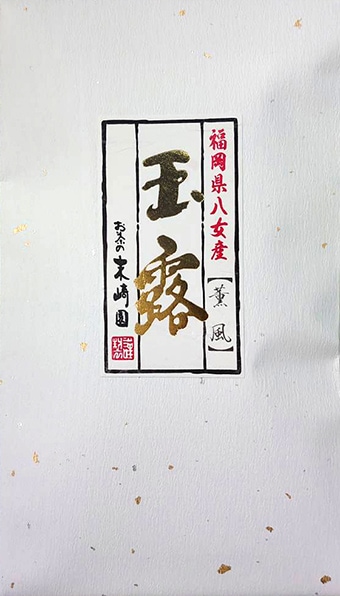 福岡県八女産【薫風】
玉露
お茶の末崎園